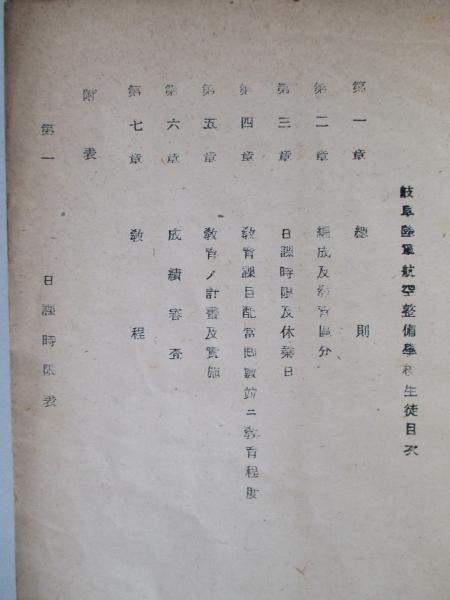 岐阜陸軍航空整備學校生徒目次
第一章 總則
第二章 編成及教育區分
第三章 日課時限及休業日
第四章 教育課目配當回數竝ニ教育程度
第五章 教育ノ計畫及實施
第六章 成績審査
第七章 教程
附表
第一 日課時限表